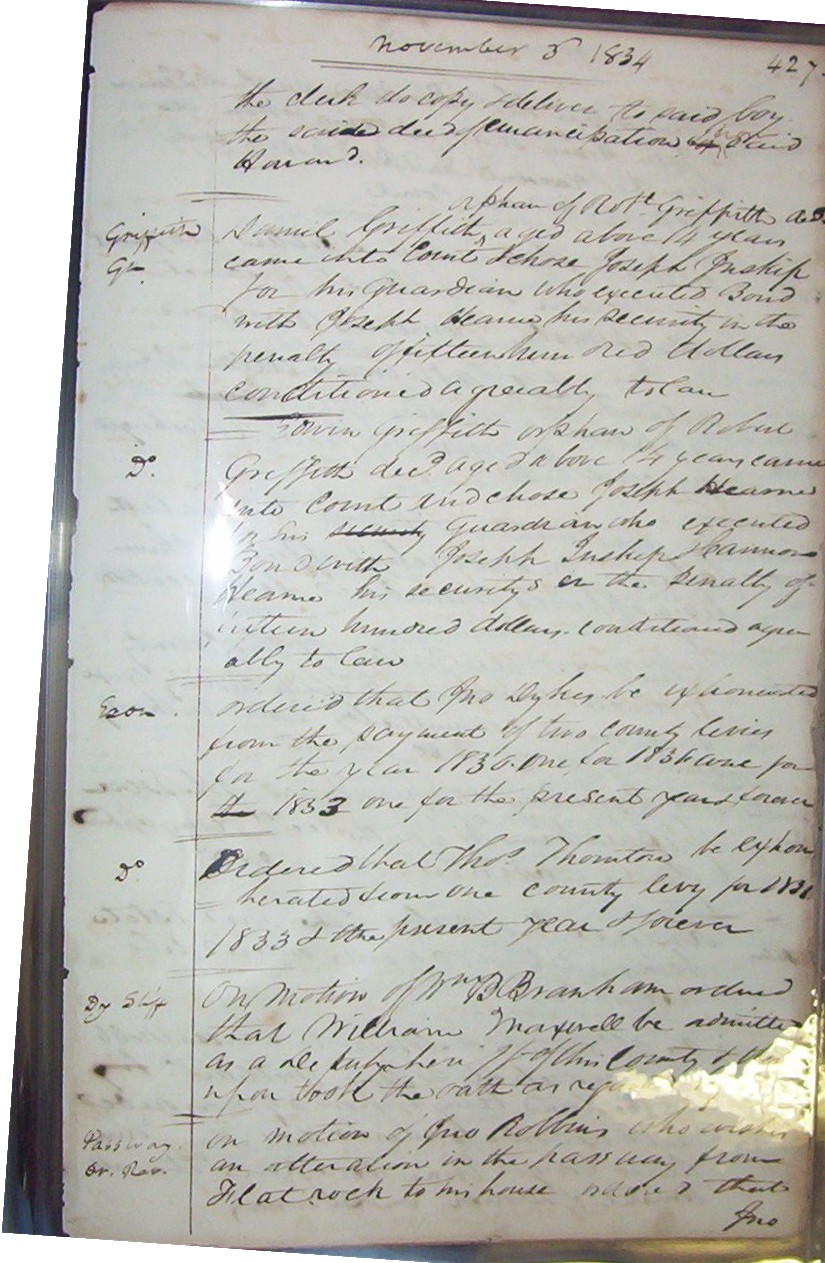 November 3 1834
427.
the clerk do copy & deliver to said boy
the said deed of emancipation said
Howard.
orphan of Robt Griffith decd
Griffith
Gn
Daniel Griffith, aged above 14 years
came into Court & chose Joseph Inskip
for his Guardian who executed Bond
with Joseph Hearne his security in the
penalty of fifteen hundred dollars
conditioned agreeably to law
Edwin Griffith orphan of Robert
Do
Griffith decd aged above 14 years came
into Court and chose Joseph Hearne
for his security Guardian who executed
Bond with Joseph Inskip & Cannon
Hearne his securitys in the penalty of
fifteen hundred dollars conditioned agree
ably to law
Exon.
ordered that Jno Dykes be exhonerated
from the payment of two county levies
for the year 1830. one for 183 one for
the 1833 one for the present year & forever
Do
Ordered that Thos Thornton be exhon
herated from one county levy for 1831
1833 & the present year & forever
Dy Shff
On Motion of Wm B. Branham ordered
that William Maxwell be admitted
as a deputy sheriff of this County &
upon took the oath as
Passway
or. Rev.
on motion of Jno Robbins who wishes
an alteration in the passway from
Flat rock to his house ordered that
Jno